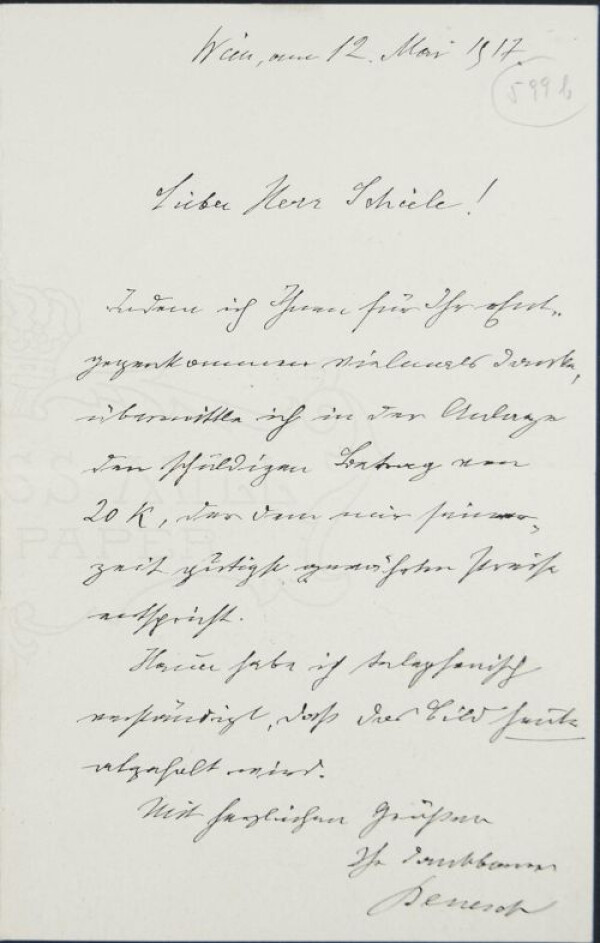 Wien, am 12. Mai 1917.
599 b
Lieber Herr Schiele!
Indem ich Ihnen für Ihr Ent-
gegenkommen vielmals danke,
übermittle ich in der Anlage
den schuldigen Betrag von
20 K, der dem mir seiner-
zeit gütigst gewährten Preise
entspricht.
Hauer habe ich telephonisch
verständigt, daß das Bild heute
abgeholt wird.
Mit herzlichen Grüßen
Ihr dankbarer
Benesch
PAPER